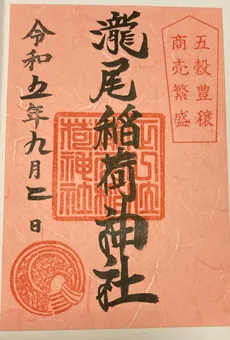 五穀豊穣
商売繁盛
瀧尾稲荷神社
正一位
荷神社
令和五年九月二日